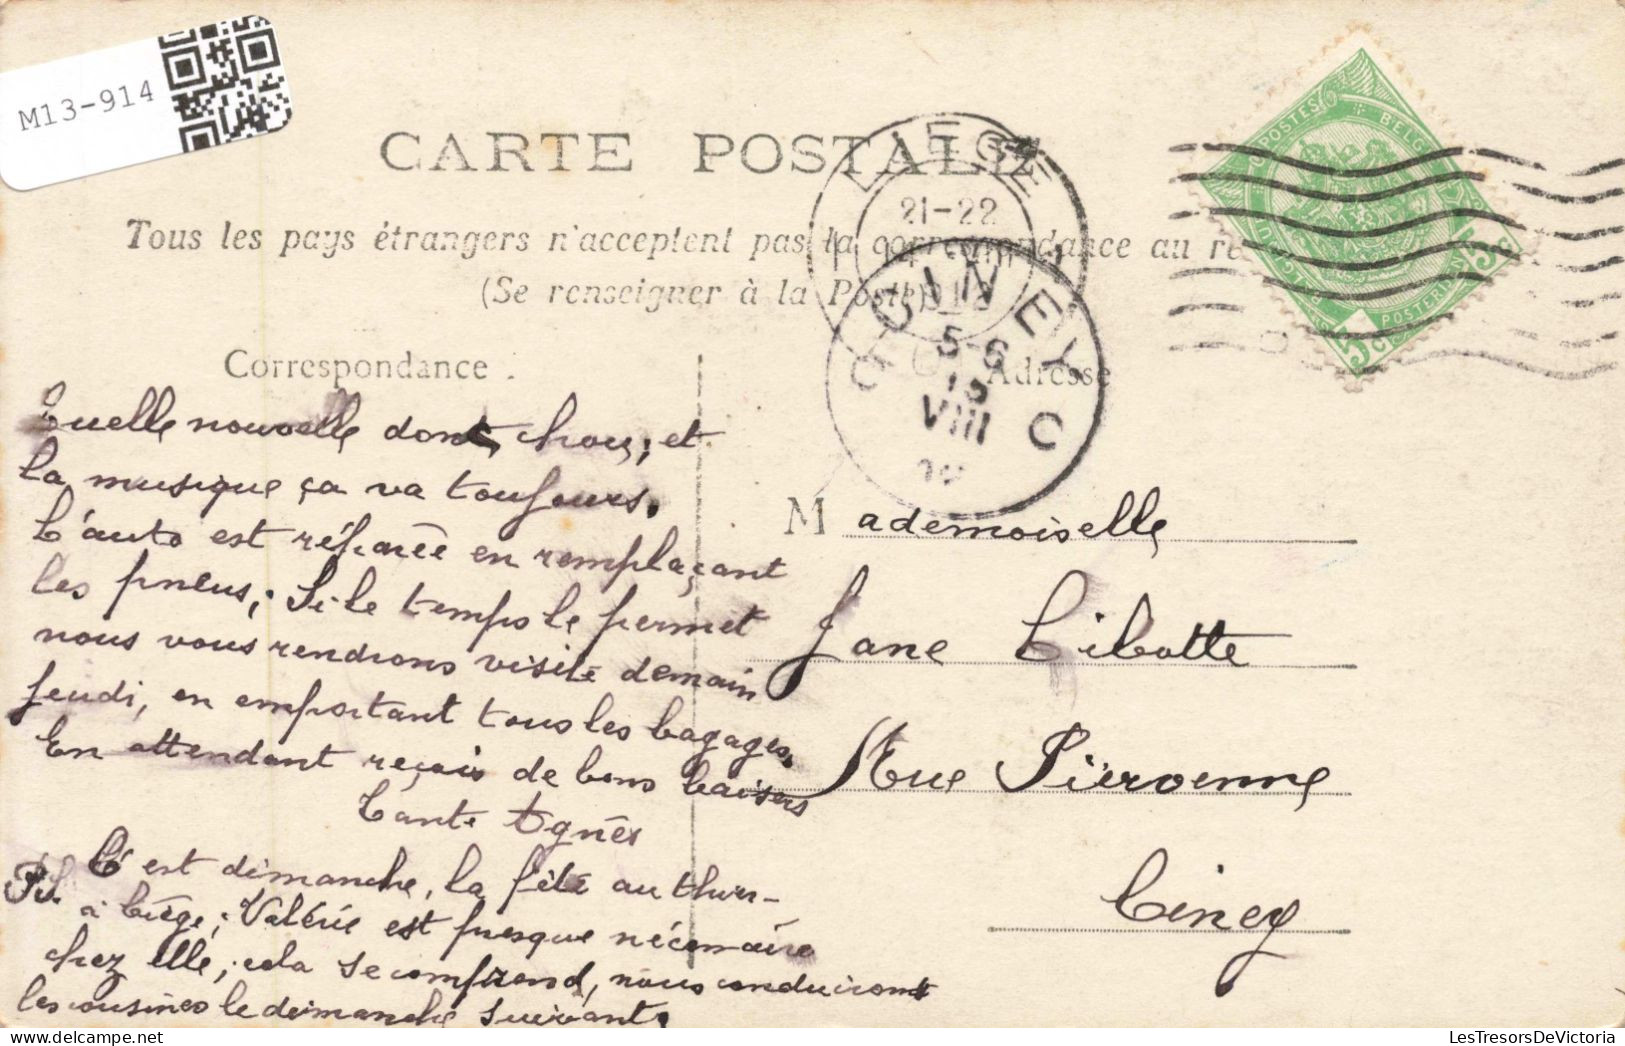 M13-914
CARTE POSTALE
Tous les pays étrangers n'acceptent pas la correspondance au re
(Se renseigner à la Poste)
LIEGE
21-22
CINEY
5-6
15
VIII
C
POSTES
BELG
5c
POSTERIJEN
5c
Correspondance
Adresse
Quelle nouvelle dont, chou, et
la musique ça va toujours.
L'auto est réparée en remplaçant
les pneus; Si le temps le permet
nous vous rendrons visite demain
jeudi, en emportant tous les bagages.
En attendant reçois de bons baisers
Tante Agnès
PS. C'est dimanche, la fête au thier-
à-Liège; Valérie est presque nécessaire
chez elle; cela se comprend, nous conduirons
les cousines le dimanche suivant.
Mademoiselle
Jane Libotte
Rue Piervenne
Ciney
LesTresorsDeVictoria